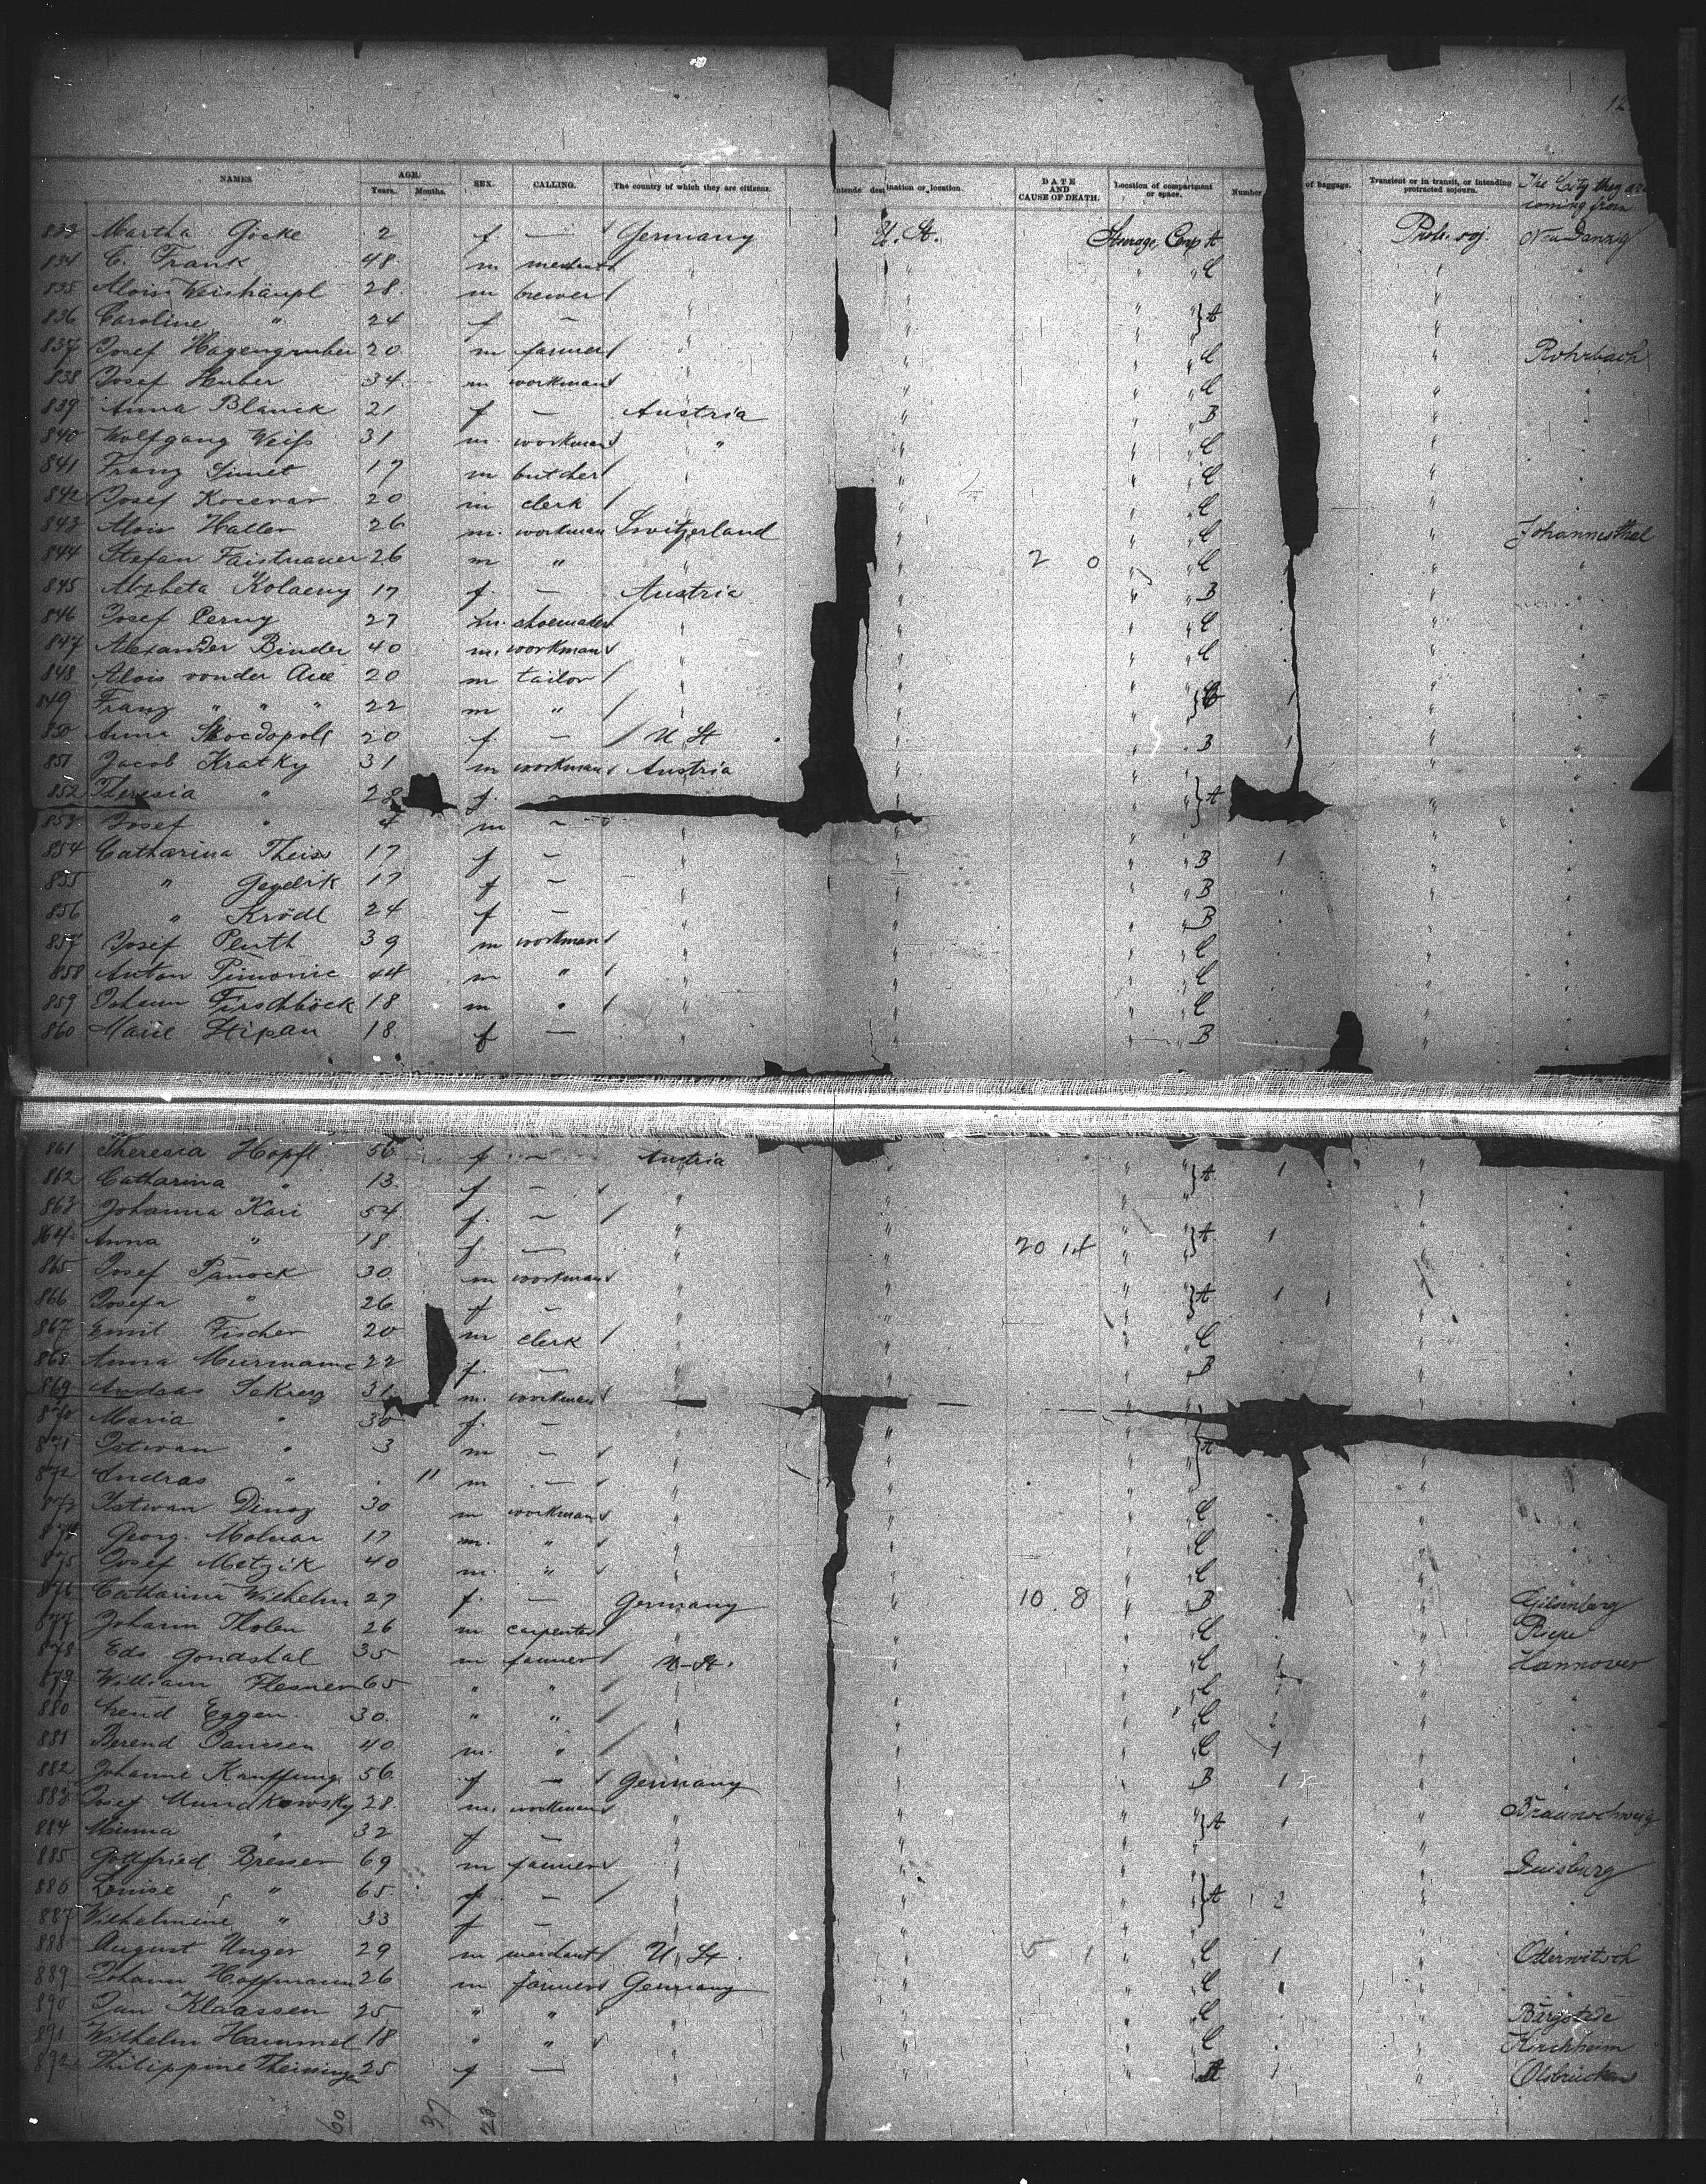 12
NAMES AGE. Years. Months. SEX. CALLING. The country of which they are citizens. Intende destination or location. DATE AND CAUSE OF DEATH. Location of compartment or space. Number of baggage. Transient or in transit, or intending protracted sojourn. The City they are coming from
833 Martha Göcke 2 f — / Germany U. St. Steerage, Comp A Protr. soj. Neu Danzig
834 C. Frank 48 m merchant " " " " C "
835 Alois Weishäupl 28 m brewer / " " " " "
836 Caroline " 24 f — " " " " } A "
837 Josef Hagengruber 20 m farmer / " " " " C " Rohrbach
838 Josef Huber 34 m workman " " " C "
839 Anna Blánik 21 f — Austria " " " B "
840 Wolfgang Weiß 31 m workman " " " " C "
841 Franz Simet 17 m butcher / " " " " C "
842 Josef Kocevar 20 m clerk / " " " " C "
843 Alois Haller 26 m workman Switzerland " " " C " Johannesthal
844 Stefan Faistnauer 26 m " " " 2 0 " " C "
845 Alzbeta Kolaeny 17 f — Austria " " " B "
846 Josef Cerny 27 m shoemaker " " " " C "
847 Alexander Binder 40 m workman " " " " C "
848 Alois vonder Aue 20 m tailor / " " " " "
849 Franz " " " 22 m " / " " " " } C 1 "
850 Anna Skocdopole 20 f — / U. St " " " B 1 "
851 Jacob Kratky 31 m workman Austria " " " "
852 Theresia " 28 f — " " " " } A "
853 Josef " 4 m — " " " " "
854 Catharina Theiss 17 f — " " " " B 1 "
855 " Gegdrik 17 f — " " " " B "
856 " Krödl 24 f — " " " B "
857 Josef Pluth 39 m workman " " " " C "
858 Anton Simonic 44 m " / " " " " C "
859 Johann Firschböck 18 m " / " " " " C "
860 Marie Stipan 18 f — " " " " B "
861 Theresia Höpfl 56 f — Austria " " " "
862 Catharina " 13 f — " " " " } A 1 "
863 Johanna Kari 54 f — / " " " " "
864 Anna " 18 f — " " 20 14 " " } A 1 "
865 Josef Panock 30 m workman " " " " "
866 Josefa " 26 f — " " " " } A 1 "
867 Emil Fischer 20 m clerk / " " " " C "
868 Anna Murmann 22 f — " " " " B "
869 Andras Sakreg 31 m workman " " " " "
870 Maria " 30 f — " " " " "
871 Istwan " 3 m — " " " " } A "
872 Andras " 11 m — " " " " "
873 Istwan Dinsz 30 m workman " " " " C "
874 Georg. Molnar 17 m " " " " " C "
875 Josef Metzik 40 m " " " " " C "
876 Catharina Wilhelm 27 f — Germany " 10 8 " " B "
877 Johann Tholen 26 m carpenter " " " " C " Riepe
878 Eds Gondstal 35 m farmer / U-St. " " " C 1 " Hannover
879 William Flesner 65 " " / " " " " C 1 "
880 Arend Eggen 30 " " / " " " " C 2 "
881 Berend Janssen 40 m " / " " " " C 1 "
882 Johanne Kauffung 56 f — / Germany " " " B 1 "
883 Josef Mundkowsky 28 m workman " " " " " Braunschweig
884 Minna " 32 f — " " " " } A 1 "
885 Gottfried Bresser 69 m farmer " " " " " Duisburg
886 Louise " 65 f — / " " " " } A 2 "
887 Wilhelmine " 33 f — " " " " "
888 August Unger 29 m merchant / U. St. " 5 1 " " C 1 " Otterwitsch
889 Johann Hoffmann 26 m farmer Germany " " " C "
890 Jan Klaassen 25 " " " " " " C "
891 Wilhelm Hammel 18 " " " " " " C " Kirchheim
892 Philippine Theisinger 25 f — " " " " A 1 " Olsbrücken
60 37 23